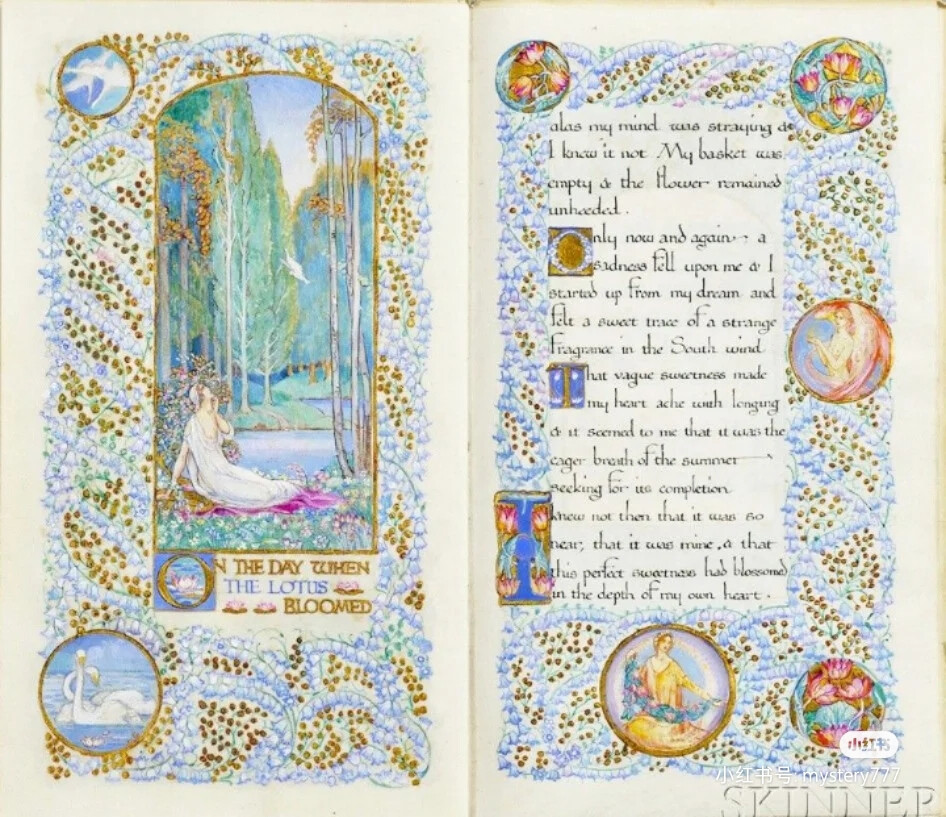 ON THE DAY WHEN
THE LOTUS
BLOOMED
alas my mind was straying &
I knew it not. My basket was
empty & the flower remained
unheeded.
Only now and again a
sadness fell upon me & I
started up from my dream and
felt a sweet trace of a strange
fragrance in the South wind
That vague sweetness made
my heart ache with longing
& it seemed to me that it was the
eager breath of the summer
seeking for its completion
I knew not then that it was so
near, that it was mine, & that
this perfect sweetness had blossomed
in the depth of my own heart.
小红书
小红书号 mystery777
SKINNER